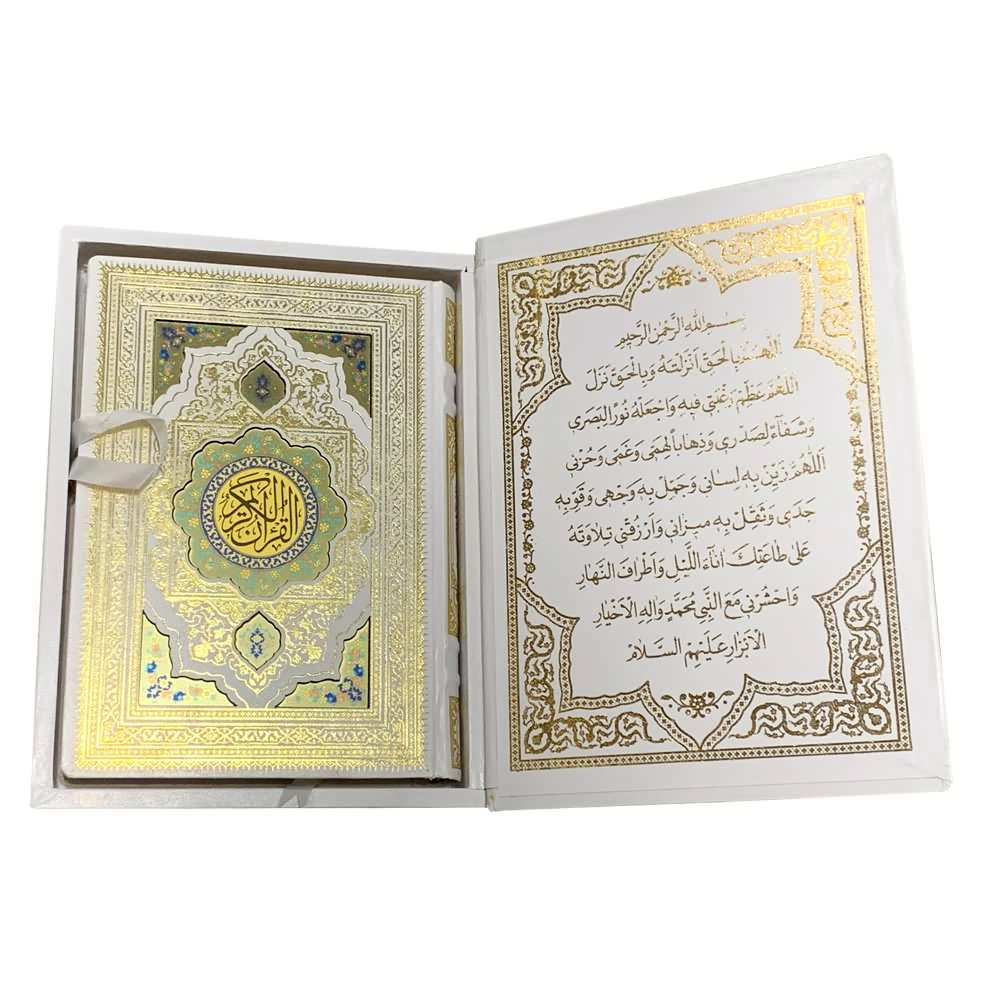 القرآن الكريم
بسم الله الرحمن الرحيم
اللهم بالحق انزلته وبالحق نزل
اللهم عظم رغبتي فيه واجعله نورا لبصري
وشفاء لصدري وذهابا لهمي وغمي وحزني
اللهم زين به لساني وجمل به وجهي وقو به
جسدي وثقل به ميزاني وارزقني تلاوته
على طاعتك اناء الليل واطراف النهار
واحشرني مع النبي محمد واله الاخيار
الابرار عليهم السلام